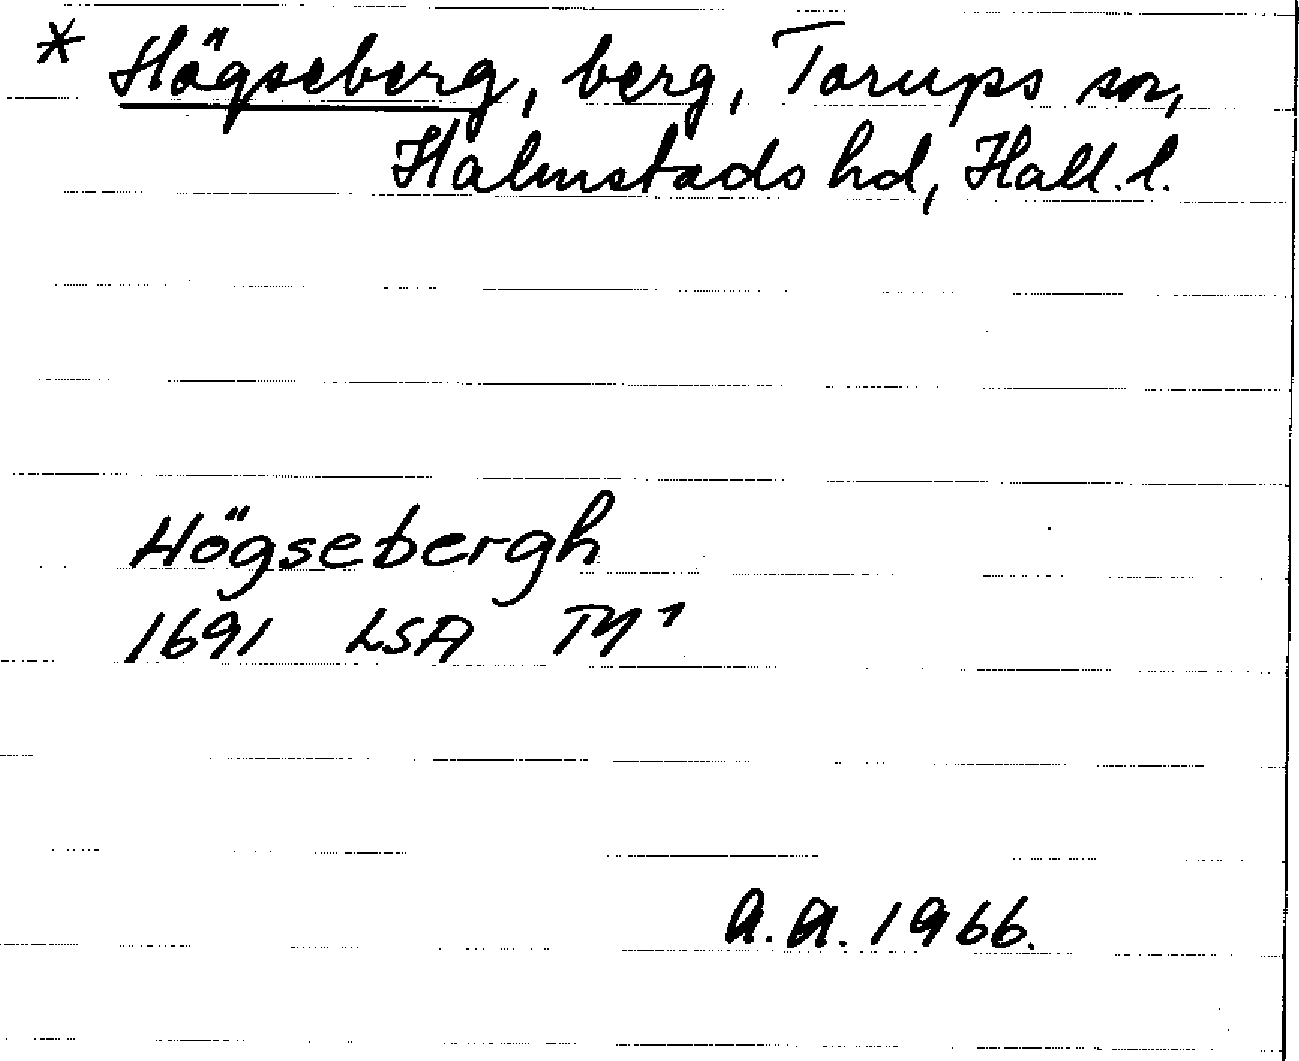 * Högseberg, berg, Torups sn,
Halmstads hd, Hall. l.
Högsebergh
1691 LSA TY¹
A. A. 1966.